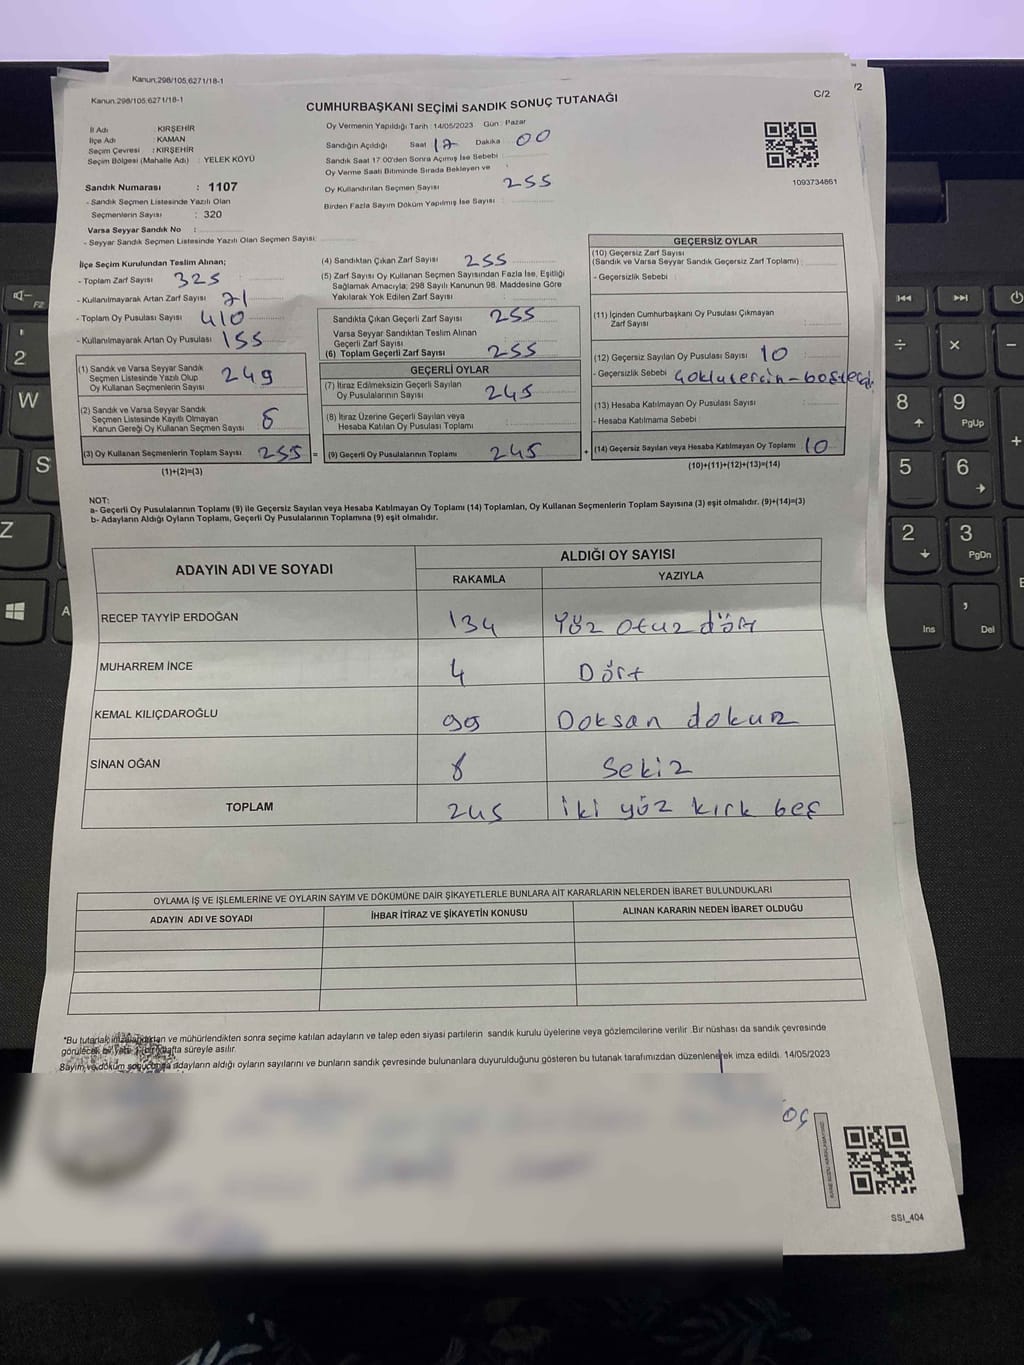 Kanun.298/105,6271/18-1
Kanun.298/105,6271/18-1
CUMHURBAŞKANI SEÇİMİ SANDIK SONUÇ TUTANAĞI
C/2
/2
İl Adı : KIRŞEHİR
İlçe Adı : KAMAN
Seçim Çevresi : KIRŞEHİR
Seçim Bölgesi (Mahalle Adı) : YELEK KÖYÜ
Sandık Numarası : 1107
- Sandık Seçmen Listesinde Yazılı Olan
Seçmenlerin Sayısı : 320
Varsa Seyyar Sandık No :
- Seyyar Sandık Seçmen Listesinde Yazılı Olan Seçmen Sayısı:
Oy Vermenin Yapıldığı Tarih : 14/05/2023 Gün : Pazar
Sandığın Açıldığı Saat 17 Dakika 00
Sandık Saat 17.00'den Sonra Açımış İse Sebebi
Oy Verme Saati Bitiminde Sırada Bekleyen ve
Oy Kullandırılan Seçmen Sayısı 255
Birden Fazla Sayım Döküm Yapılmış İse Sayısı :
1093734661
İlçe Seçim Kurulundan Teslim Alınan;
- Toplam Zarf Sayısı 325
- Kullanılmayarak Artan Zarf Sayısı 71
- Toplam Oy Pusulası Sayısı 410
- Kullanılmayarak Artan Oy Pusulası 155
(1) Sandık ve Varsa Seyyar Sandık
Seçmen Listesinde Yazılı Olup
Oy Kullanan Seçmenlerin Sayısı 249
(2) Sandık ve Varsa Seyyar Sandık
Seçmen Listesinde Kayıtlı Olmayan
Kanun Gereği Oy Kullanan Seçmen Sayısı 6
(3) Oy Kullanan Seçmenlerin Toplam Sayısı 255 =
(1)+(2)=(3)
(4) Sandıktan Çıkan Zarf Sayısı 255
(5) Zarf Sayısı Oy Kullanan Seçmen Sayısından Fazla İse, Eşitliği
Sağlamak Amacıyla; 298 Sayılı Kanunun 98. Maddesine Göre
Yakılarak Yok Edilen Zarf Sayısı :
Sandıkta Çıkan Geçerli Zarf Sayısı 255
Varsa Seyyar Sandıktan Teslim Alınan
Geçerli Zarf Sayısı :
(6) Toplam Geçerli Zarf Sayısı 255
GEÇERLİ OYLAR
(7) İtiraz Edilmeksizin Geçerli Sayılan
Oy Pusulalarının Sayısı 245
(8) İtiraz Üzerine Geçerli Sayılan veya
Hesaba Katılan Oy Pusulası Toplamı :
(9) Geçerli Oy Pusulalarının Toplamı 245 +
GEÇERSİZ OYLAR
(10) Geçersiz Zarf Sayısı
(Sandık ve Varsa Seyyar Sandık Geçersiz Zarf Toplamı) :
- Geçersizlik Sebebi :
(11) İçinden Cumhurbaşkanı Oy Pusulası Çıkmayan
Zarf Sayısı :
(12) Geçersiz Sayılan Oy Pusulası Sayısı 10
- Geçersizlik Sebebi
(13) Hesaba Katılmayan Oy Pusulası Sayısı :
- Hesaba Katılmama Sebebi :
(14) Geçersiz Sayılan veya Hesaba Katılmayan Oy Toplamı 10
(10)+(11)+(12)+(13)=(14)
NOT:
a- Geçerli Oy Pusulalarının Toplamı (9) ile Geçersiz Sayılan veya Hesaba Katılmayan Oy Toplamı (14) Toplamları, Oy Kullanan Seçmenlerin Toplam Sayısına (3) eşit olmalıdır. (9)+(14)=(3)
b- Adayların Aldığı Oyların Toplamı, Geçerli Oy Pusulalarının Toplamına (9) eşit olmalıdır.
ADAYIN ADI VE SOYADI
ALDIĞI OY SAYISI
RAKAMLA YAZIYLA
RECEP TAYYİP ERDOĞAN 134 Yüz otuz dört
MUHARREM İNCE 4 Dört
KEMAL KILIÇDAROĞLU 99 Doksan dokuz
SİNAN OĞAN 8 Sekiz
TOPLAM 245 iki yüz kırk beş
OYLAMA İŞ VE İŞLEMLERİNE VE OYLARIN SAYIM VE DÖKÜMÜNE DAİR ŞİKAYETLERLE BUNLARA AİT KARARLARIN NELERDEN İBARET BULUNDUKLARI
ADAYIN ADI VE SOYADI İHBAR İTİRAZ VE ŞİKAYETİN KONUSU ALINAN KARARIN NEDEN İBARET OLDUĞU
*Bu tutanak imzalandıktan ve mühürlendikten sonra seçime katılan adayların ve talep eden siyasi partilerin sandık kurulu üyelerine veya gözlemcilerine verilir .Bir nüshası da sandık çevresinde
görülecek bir yere hafta süreyle asılır.
Sayım ve döküm sonucunda adayların aldığı oyların sayılarını ve bunların sandık çevresinde bulunanlara duyurulduğunu gösteren bu tutanak tarafımızdan düzenlenerek imza edildi. 14/05/2023
SSI_404